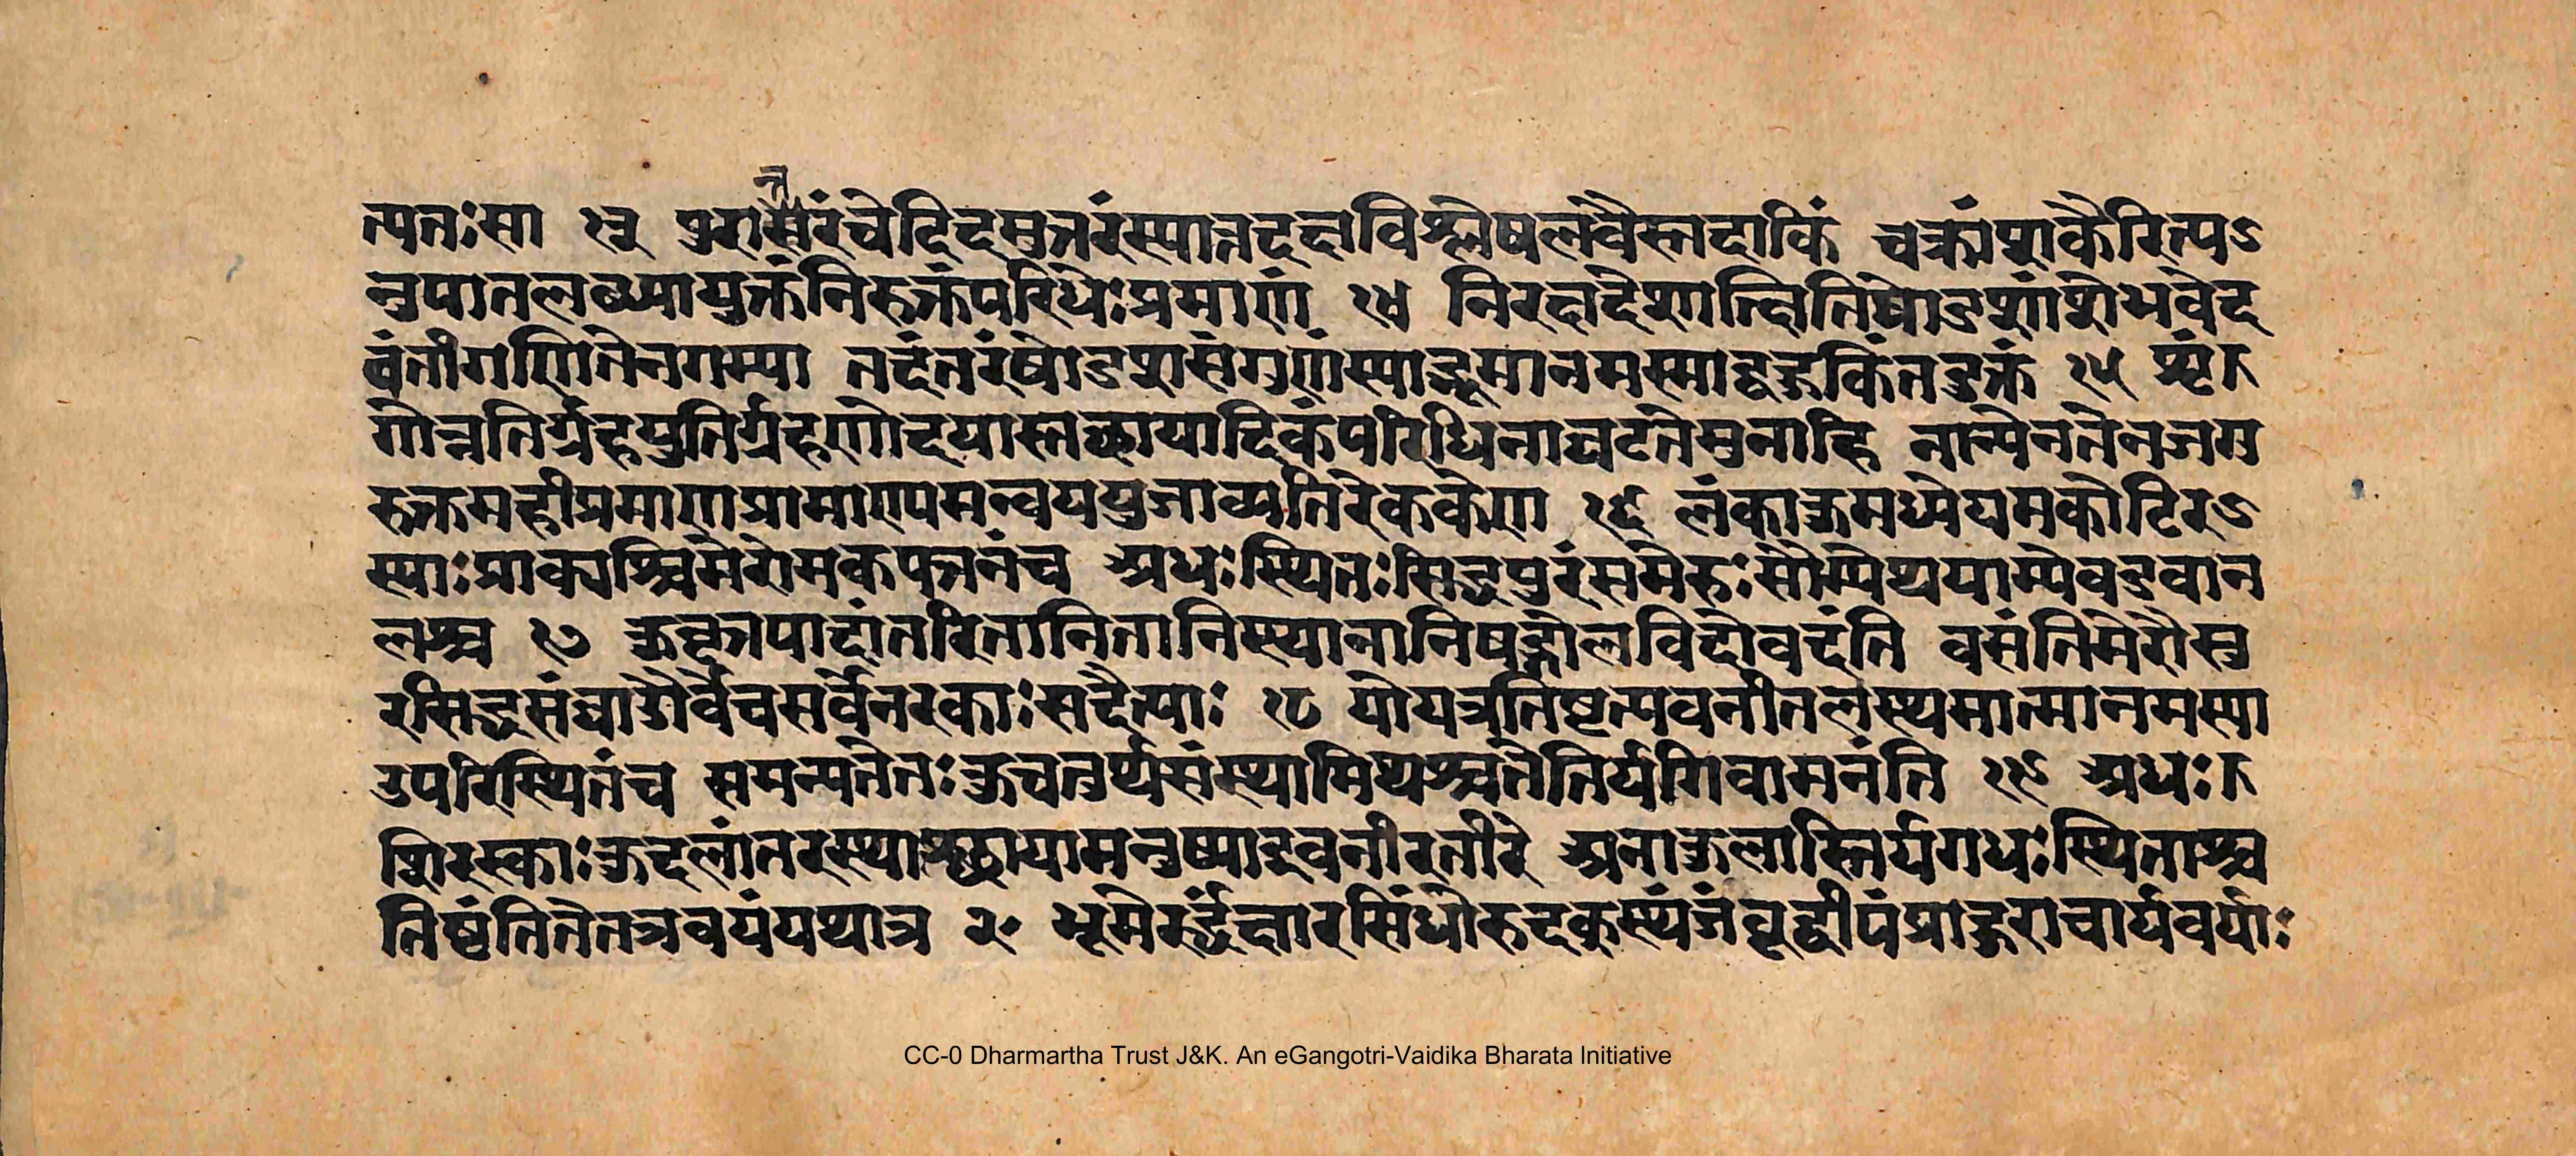 त्यतः सा १३ पुरांतरं चेदिदमुत्तरं स्यात्तदक्षविश्लेषलवैस्तदा किं चक्रांशकैरित्यऽ
नुपातलब्ध्या युक्तं निरुक्तं परिधेः प्रमाणं १४ निरक्षदेशात्क्षितिषोडशांशे भवेद
वंती गणितेन गम्या तदंतरं षोडशसंगुणं स्याद्भूमानमस्माद्बहु किं तदुक्तं १५ शृं
गोन्नतिर्ग्रहयुतिर्ग्रहणोदयास्तछायादिकं परिधिना घटतेमुना हि नान्येन तेन जग
रुक्तमहीप्रमाणप्रामाण्यमन्वययुजा व्यतिरेककेण १६ लंका कुमध्ये यमकोटिरऽ
स्याः प्राक्पश्चिमे रोमकपत्तनं च अधः स्थितः सिद्धपुरं सुमेरुः सौम्येथ याम्ये वडवान
लश्च १७ कुवृत्तपादांतरितानि तानि स्थानानि षड्गोलविदो वदंति वसंति मेरौ सु
रसिद्धसंघा और्वे च सर्वे नरकाः सदैत्याः १८ यो यत्र तिष्टत्यवनीतलस्थमात्मानमस्या
उपरिस्थितं च समन्यतेतः कुचतुर्थसंस्था मिथश्च ते तिर्यगिवामनंति १९ अधः
शिरस्काः कुदलांतरस्थाश्छायामनुष्या इव नीरतीरे अनाकुलास्तिर्यगधः स्थिताश्च
तिष्ठंति ते तत्र वयं यथात्र २० भूमेरर्द्धं क्षारसिंधोरुदक्स्थं जंबूद्वीपं प्राहुराचार्यवर्याः
CC-0 Dharmartha Trust J&K. An eGangotri-Vaidika Bharata Initiative